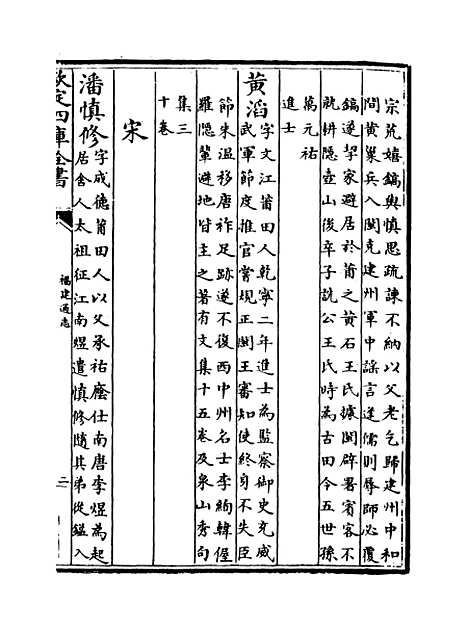 宗荒嬉鎬與慎思疏諫不納以父老乞歸建州中和
間黃巢兵入閩克建州軍中謡言逢儒則辱師必覆
鎬遂挈家避居於莆之黃石王氏據閩辟署賓客不
就耕隱壺山後卒子詵公王氏時為古田令五世孫
萬元祐
進士
黃滔字文江莆田人乾寧二年進士為監察御史充威
武軍節度推官嘗規正閩王審知使終身不失臣
節朱溫移唐祚足跡遂不復西中州名士李絢韓偓
羅隱輩避地皆主之著有文集十五卷及泉山秀句
集三
十卷
宋
潘慎修字成德莆田人以父承祐廕仕南唐李煜為起
居舍人太祖征江南煜遣慎修隨其弟從鎰入
欽定四庫全書
福建通志
二